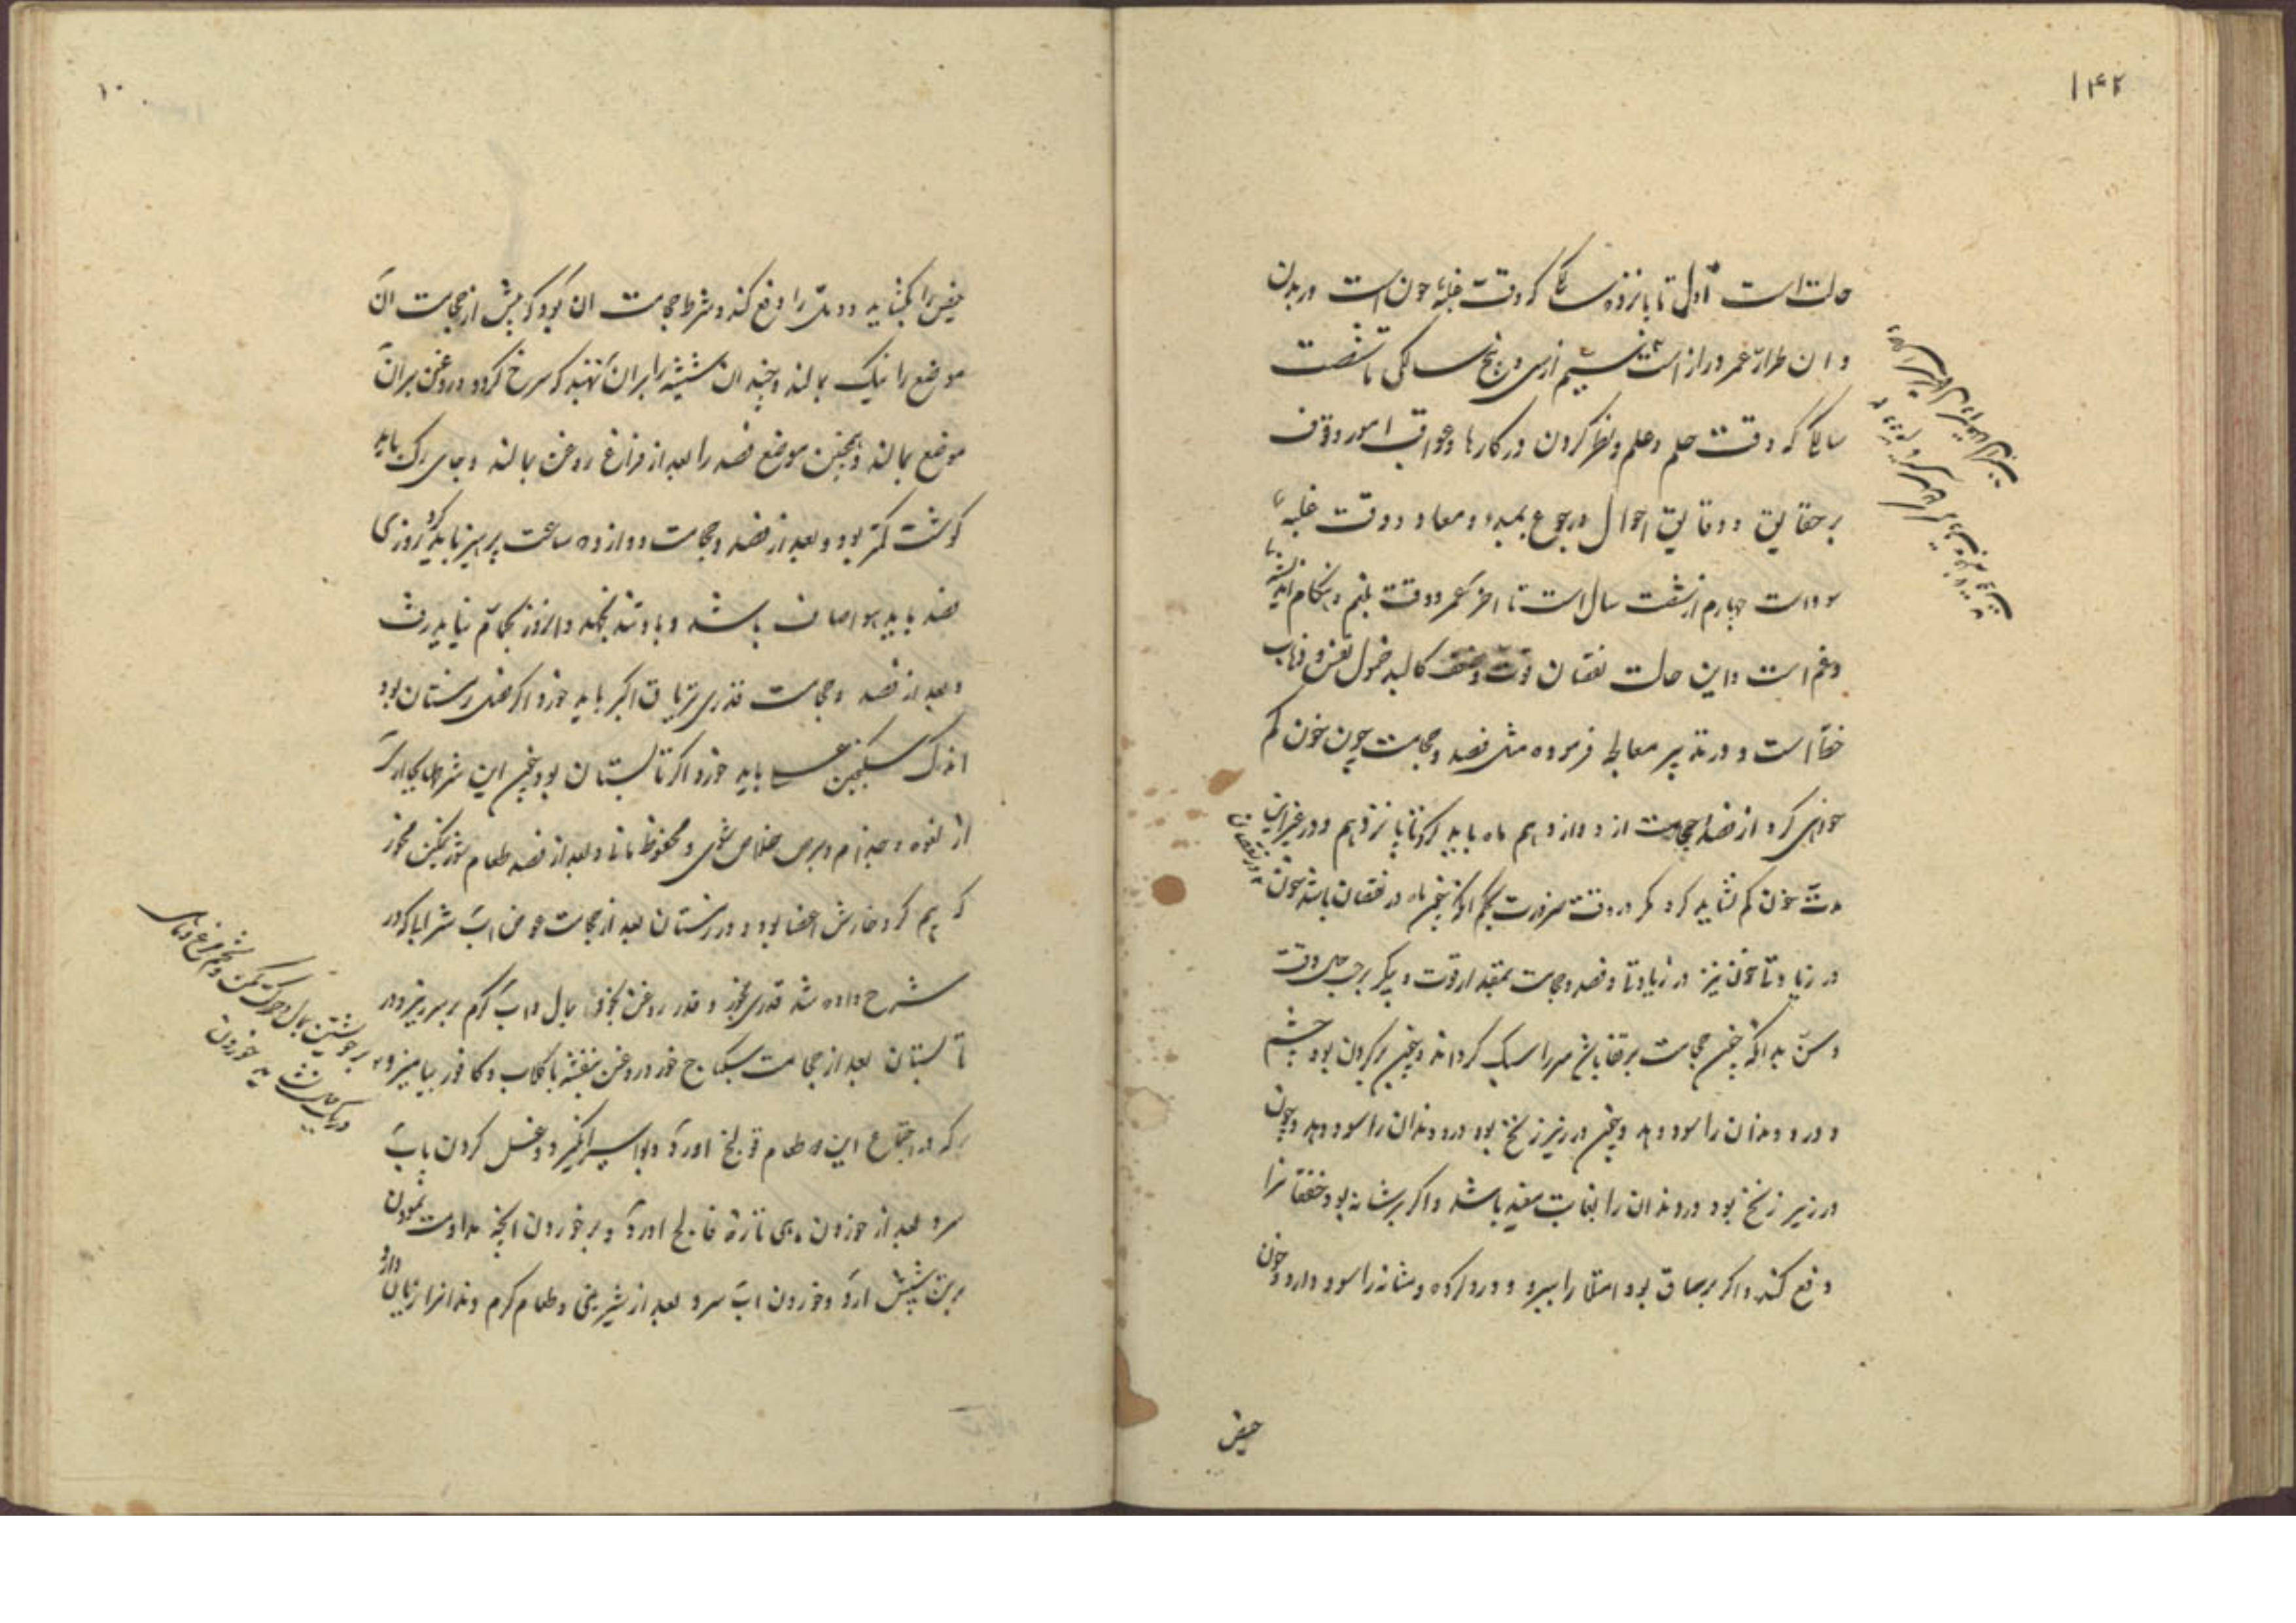 ۱۴۲
حالت است اول تا پانزده سالگی که وقت غلبهٔ خون است در بدن
و ان طراز عمر دراز است سیم از سی و پنج سالگی تا شصت
سالگی که وقت حلم و علم و نظر کردن در کارها و عواقب امور و وقوف
بر حقایق و دقایق احوال و رجوع بمبدء و معاد و وقت غلبهٔ
سوداست چهارم از شصت سال است تا اخر عمر و وقت بلغم و هنگام اندیشها
و غم است و این حالت نقصان قوت و ضعف کالبد فضول نفس و ذهاب
است و در تدبیر معالجه فرموده مثل فصد و حجامت چون خون کم
خواهی کرد از فصد و حجامت از دوازدهم ماه باید کرد تا پانزدهم و در غیر این
مدت خون کم نشاید کرد مگر در وقت ضرورت بحکم انکه چون ماه در نقصان باشد خون
در نقصان
در زیادت خون نیز در زیادت و فصد و حجامت بمقدار قوت و پیکر بر حسب وقت
و سن بدانکه چون حجامت بر قفا باشد سر را سبک گرداند و چون بر گردن بود چشم
و درد دندان را سود دهد و چون در زیر زنخ بود درد دندان را سود دهد و چون
در زیر زنخ بود درد دندان را بغایت مفید باشد و اگر بر شانه بود خفقانرا
دفع کند و اگر بر ساق بود امتلا را ببرد و درد گرده و مثانه را سود دارد و خون
حیض
۱۰
حیض را بگشاید و دمل را دفع کند و شرط حجامت ان بود که پیش از حجامت ان
موضع را نیک بمالند و چندان شیشه را بران نهند که سرخ گردد و روغن بران
موضع بمالند و همچنین موضع فصد را بعد از فراغ روغن بمالند و جای رگ باید
گوشت کمتر بود و بعد از فصد و حجامت دوازده ساعت پرهیز باید کرد روزی
فصد باید هوا صاف باشد و باد تند نجهد و انروز بحمام نباید رفت
و بعد از فصد و حجامت قدری تریاق اکبر باید خورد اگر فصل زمستان بود
اندک سکنجبین عسلی باید خورد اگر تابستان بود چون این شرط بجای ارد
از لقوه و جذام و برص خلاص شوی و محفوظ مانی و بعد از فصد طعام شور نمکین مخور
که بیم گر و خارش اعضا بود و در زمستان بعد از حجامت عوض اب شراب که در
شرح داده شد قدری بخور و قدری روغن بخود بمال و اب گرم بر سر بریز و در
تابستان بعد از حجامت سکباج خور و روغن بنفشه با گلاب و کافور بیامیز و
بر خویشتن بمال و حرکت مکن و تخم مرغ و ماهی
در یک حالت نشاید خوردن
که در اجتماع این دو طعام قولنج اورد و بواسیر انگیزد و غسل کردن باب
سرد بعد از خوردن ماهی تازه فالج اورد و بر خوردن انجیر مداومت نمودن
بر تن شپش ارد و خوردن اب سرد بعد از شیرینی و طعام گرم دندانرا زیان
دارد